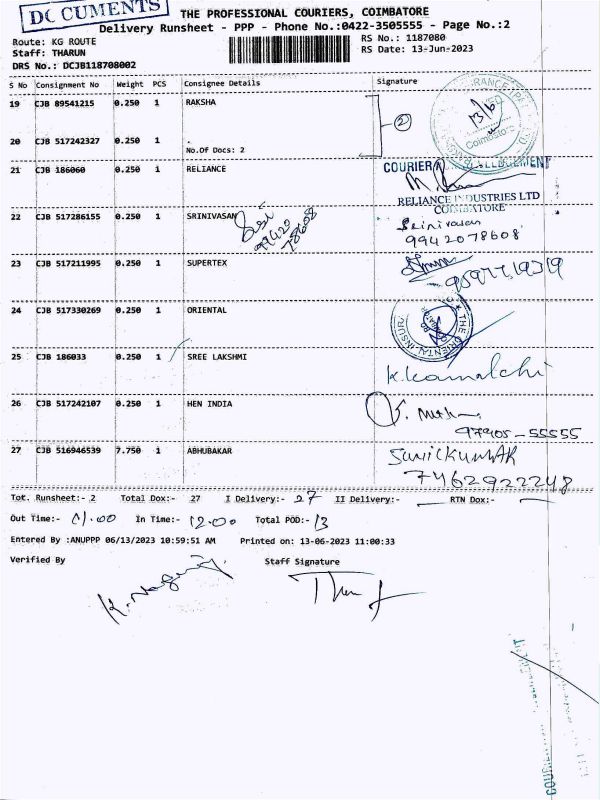 DOCUMENTS
THE PROFESSIONAL COURIERS, COIMBATORE
Delivery Runsheet - PPP - Phone No.:0422-3505555 - Page No.:2
Route: KG ROUTE
RS No.: 1187080
Staff: THARUN
RS Date: 13-Jun-2023
DRS No.: DCJB118708002
S No Consignment No Weight PCS Consignee Details Signature
19 CJB 89541215 0.250 1 RAKSHA
13/6
Coimbatore
2
20 CJB 517242327 0.250 1 .
No.Of Docs: 2
21 CJB 186060 0.250 1 RELIANCE
COURIER
RELIANCE INDUSTRIES LTD
COIMBATORE
22 CJB 517286155 0.250 1 SRINIVASAN
99420
78608
Srinivasan
9942078608
23 CJB 517211995 0.250 1 SUPERTEX
24 CJB 517330269 0.250 1 ORIENTAL
THE ORIENTAL INSUR
25 CJB 186033 0.250 1 SREE LAKSHMI
K.Kamalchi
26 CJB 517242107 0.250 1 HEN INDIA
97905-55555
27 CJB 516946539 7.750 1 ABHUBAKAR
SUNILKUMAR
7462922248
Tot. Runsheet:- 2 Total Dox:- 27 I Delivery:- 27 II Delivery:- RTN Dox:-
Out Time:- 11.00 In Time:- 12.00 Total POD:- 13
Entered By :ANUPPP 06/13/2023 10:59:51 AM Printed on: 13-06-2023 11:00:33
Verified By Staff Signature